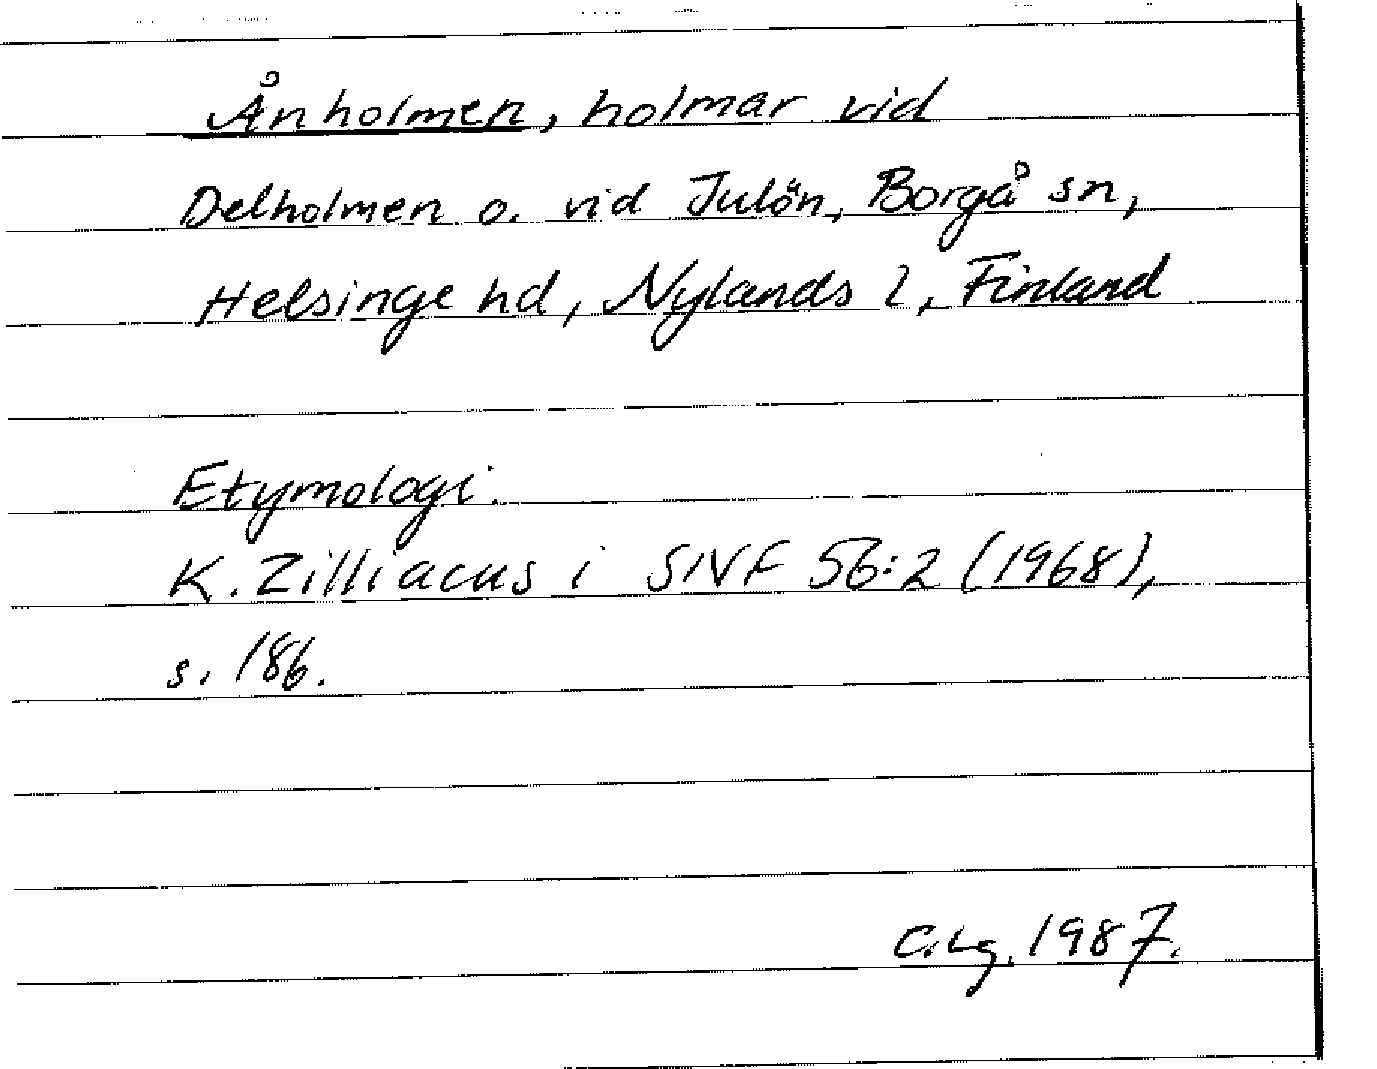 Ånholmen, holmar vid
Delholmen o. vid Julön, Borgå sn,
Helsinge hd, Nylands l, Finland
Etymologi.
K. Zilliacus i SNF 56:2 (1968),
s. 186.
C.Lg. 1987.